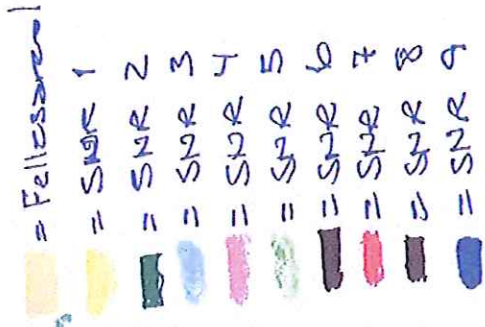 = Fellesareal
= SNR 1
= SNR 2
= SNR 3
= SNR 4
= SNR 5
= SNR 6
= SNR 7
= SNR 8
= SNR 9